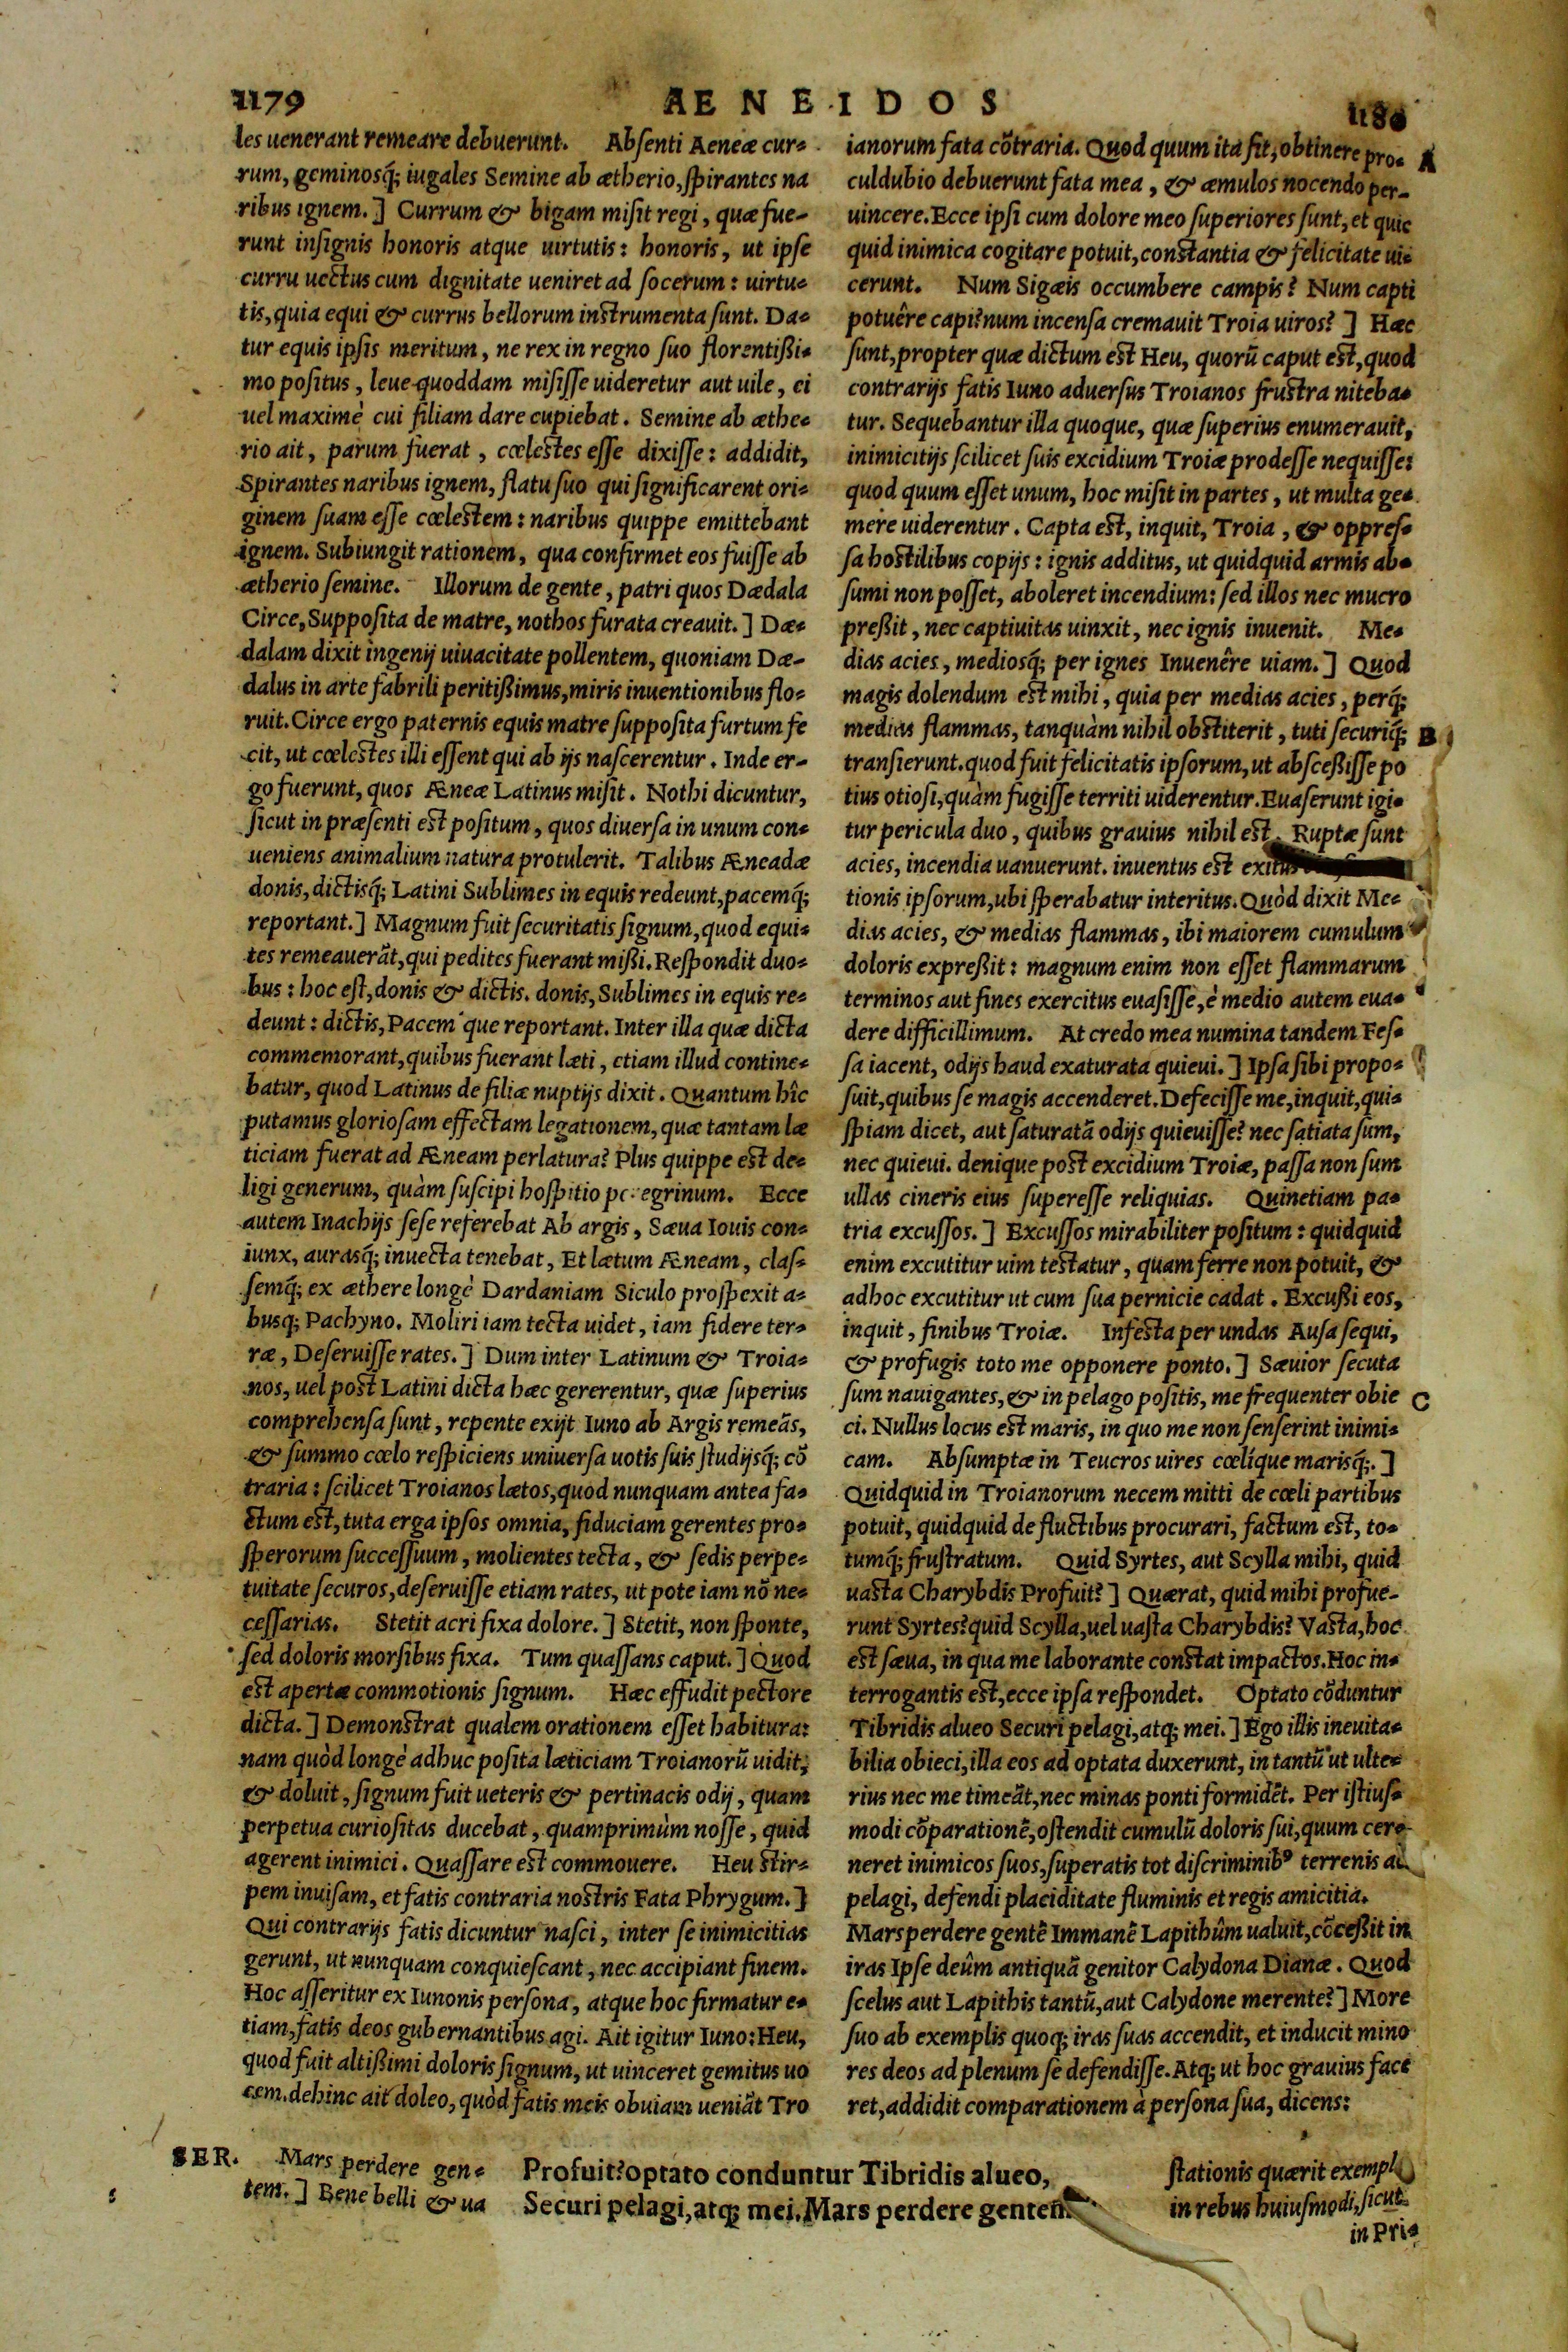 1179
AENEIDOS
1180
les uenerant remeare debuerunt. Absenti Aeneæ cur-
rum, geminosq́; iugales Semine ab ætherio, spirantes na
ribus ignem.] Currum & bigam misit regi, quæ fue-
runt insignis honoris atque uirtutis: honoris, ut ipse
curru uectus cum dignitate ueniret ad socerum: uirtu-
tis, quia equi & currus bellorum instrumenta sunt. Da-
tur equis ipsis meritum, ne rex in regno suo florentißi-
mo positus, leue quoddam misisse uideretur aut uile, ei
uel maximè cui filiam dare cupiebat. Semine ab æthe-
rio ait, parum fuerat, cœlestes esse dixisse: addidit,
Spirantes naribus ignem, flatu suo qui significarent ori-
ginem suam esse cœlestem: naribus quippe emittebant
ignem. Subiungit rationem, qua confirmet eos fuisse ab
ætherio semine. Illorum de gente, patri quos Dædala
Circe, Supposita de matre, nothos furata creauit.] Dæ-
dalam dixit ingenij uiuacitate pollentem, quoniam Dæ-
dalus in arte fabrili peritißimus, miris inuentionibus flo-
ruit. Circe ergo paternis equis matre supposita furtum fe
cit, ut cœlestes illi essent qui ab ijs nascerentur. Inde er-
go fuerunt, quos Æneæ Latinus misit. Nothi dicuntur,
sicut in præsenti est positum, quos diuersa in unum con-
ueniens animalium natura protulerit. Talibus Æneadæ
donis, dictisq́; Latini Sublimes in equis redeunt, pacemq́;
reportant.] Magnum fuit securitatis signum, quod equi-
tes remeauerāt, qui pedites fuerant mißi. Respondit duo-
bus: hoc est, donis & dictis. donis, Sublimes in equis re-
deunt: dictis, Pacem que reportant. Inter illa quæ dicta
commemorant, quibus fuerant læti, etiam illud contine-
batur, quod Latinus de filiæ nuptijs dixit. Quantum hîc
putamus gloriosam effectam legationem, quæ tantam læ
ticiam fuerat ad Æneam perlatura? Plus quippe est de-
ligi generum, quàm suscipi hospitio peregrinum. Ecce
autem Inachijs sese referebat Ab argis, Sæua Iouis con-
iunx, aurasq́; inuecta tenebat, Et lætum Æneam, clas-
semq́; ex æthere longè Dardaniam Siculo prospexit a-
busq; Pachyno. Moliri iam tecta uidet, iam fidere ter-
ræ, Deseruisse rates.] Dum inter Latinum & Troia-
nos, uel post Latini dicta hæc gererentur, quæ superius
comprehensa sunt, repente exijt Iuno ab Argis remeās,
& summo cœlo respiciens uniuersa uotis suis studijsq́; cō
traria: scilicet Troianos lætos, quod nunquam antea fa-
ctum est, tuta erga ipsos omnia, fiduciam gerentes pro-
sperorum successuum, molientes tecta, & sedis perpe-
tuitate securos, deseruisse etiam rates, ut pote iam nō ne-
cessarias. Stetit acri fixa dolore.] Stetit, non sponte,
sed doloris morsibus fixa. Tum quassans caput.] Quod
est apertæ commotionis signum. Hæc effudit pectore
dicta.] Demonstrat qualem orationem esset habitura:
nam quòd longè adhuc posita læticiam Troianorū uidit,
& doluit, signum fuit ueteris & pertinacis odij, quam
perpetua curiositas ducebat, quamprimùm nosse, quid
agerent inimici. Quassare est commouere. Heu stir-
pem inuisam, et fatis contraria nostris Fata Phrygum.]
Qui contrarijs fatis dicuntur nasci, inter se inimicitias
gerunt, ut nunquam conquiescant, nec accipiant finem.
Hoc asseritur ex Iunonis persona, atque hoc firmatur e-
tiam, fatis deos gubernantibus agi. Ait igitur Iuno: Heu,
quod fuit altißimi doloris signum, ut uinceret gemitus uo
cem. dehinc ait doleo, quòd fatis meis obuiam ueniāt Tro
ianorum fata cōtraria. Quod quum ita sit, obtinere pro- A
culdubio debuerunt fata mea, & æmulos nocendo per-
uincere. Ecce ipsi cum dolore meo superiores sunt, et quic
quid inimica cogitare potuit, constantia & felicitate ui-
cerunt. Num Sigæis occumbere campis? Num capti
potuêre capi? num incensa cremauit Troia uiros?] Hæc
sunt, propter quæ dictum est Heu, quorū caput est, quod
contrarijs fatis Iuno aduersus Troianos frustra niteba-
tur. Sequebantur illa quoque, quæ superius enumerauit,
inimicitijs scilicet suis excidium Troiæ prodesse nequisse:
quod quum esset unum, hoc misit in partes, ut multa ge-
mere uiderentur. Capta est, inquit, Troia, & oppres-
sa hostilibus copijs: ignis additus, ut quidquid armis ab-
sumi non posset, aboleret incendium: sed illos nec mucro
preßit, nec captiuitas uinxit, nec ignis inuenit. Me-
dias acies, mediosq́; per ignes Inuenêre uiam.] Quod
magis dolendum est mihi, quia per medias acies, perq́;
medias flammas, tanquàm nihil obstiterit, tuti securiq́; B
transierunt. quod fuit felicitatis ipsorum, ut absceßisse po
tius otiosi, quàm fugisse territi uiderentur. Euaserunt igi-
tur pericula duo, quibus grauius nihil est. Ruptæ sunt
acies, incendia uanuerunt. inuentus est exitus
tionis ipsorum, ubi sperabatur interitus. Quòd dixit Me-
dias acies, & medias flammas, ibi maiorem cumulum
doloris expreßit: magnum enim non esset flammarum
terminos aut fines exercitus euasisse, è medio autem eua-
dere difficillimum. At credo mea numina tandem Fes-
sa iacent, odijs haud exaturata quieui.] Ipsa sibi propo-
suit, quibus se magis accenderet. Defecisse me, inquit, qui-
spiam dicet, aut saturatā odijs quieuisse? nec satiata sum,
nec quieui. denique post excidium Troiæ, passa non sum
ullas cineris eius superesse reliquias. Quinetiam pa-
tria excussos.] Excussos mirabiliter positum: quidquid
enim excutitur uim testatur, quam ferre non potuit, &
adhoc excutitur ut cum sua pernicie cadat. Excußi eos,
inquit, finibus Troiæ. Infesta per undas Ausa sequi,
& profugis toto me opponere ponto.] Sæuior secuta
sum nauigantes, & in pelago positis, me frequenter obie C
ci. Nullus locus est maris, in quo me non senserint inimi-
cam. Absumptæ in Teucros uires cœlíque marisq́;.]
Quidquid in Troianorum necem mitti de cœli partibus
potuit, quidquid de fluctibus procurari, factum est, to-
tumq́; frustratum. Quid Syrtes, aut Scylla mihi, quid
uasta Charybdis Profuit?] Quærat, quid mihi profue-
runt Syrtes? quid Scylla, uel uasta Charybdis? Vasta, hoc
est sæua, in qua me laborante constat impactos. Hoc in-
terrogantis est, ecce ipsa respondet. Optato cōduntur
Tibridis alueo Securi pelagi, atq; mei.] Ego illis ineuita-
bilia obieci, illa eos ad optata duxerunt, in tantū ut ulte-
rius nec me timeāt, nec minas ponti formidēt. Per istius-
modi cōparationē, ostendit cumulū doloris sui, quum cer-
neret inimicos suos, superatis tot discriminibꝰ terrenis ac
pelagi, defendi placiditate fluminis et regis amicitia.
Mars perdere gentē Immanē Lapithûm ualuit, cōceßit in
iras Ipse deûm antiquā genitor Calydona Dianæ. Quod
scelus aut Lapithis tantū, aut Calydone merente?] More
suo ab exemplis quoq; iras suas accendit, et inducit mino
res deos ad plenum se defendisse. Atq; ut hoc grauius face
ret, addidit comparationem à persona sua, dicens:
SER. Mars perdere gen-
tem.] Bene belli & ua
Profuit? optato conduntur Tibridis alueo,
Securi pelagi, atq; mei. Mars perdere gentem
stationis quærit
in rebus huiusmodi, sicut
in Pri-